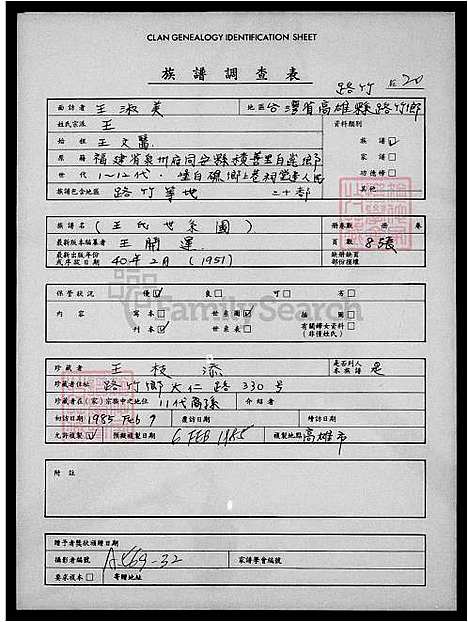 CLAN GENEALOGY IDENTIFICATION SHEET
族譜調查表
路竹 20
面訪者 王淑美 地區 台灣省高雄縣路竹鄉
姓氏宗派 王 資料類別
始祖 王文醫 族譜 ☑
原籍 福建省泉州府同安縣積善里白崑鄉 家譜 □
世代 1～12代 功德榜 □
族譜包含地區 路竹等地 二十都 其他
族譜名 (王氏世系圖) 冊卷數 冊 卷
最新版本編纂者 王開運 頁數 85張
最新出版年份或序放日期 40年2月 (1951) 缺冊缺頁部份殘壞
保管狀況 優☑ 良□ 可□ 劣□
內容 寫本□ 世系圖☑ 插圖□
刊本☑ 世系表□ 有關婦女資料□ (非僅姓氏)
FamilySearch
珍藏者 王枝添 是否列入本族譜 是
珍藏者住址 路竹鄉大仁路330號
珍藏者在(家)宗族中之地位 11代裔孫 介紹者
初訪日期 1985 Feb 9 覆訪日期 轉訪日期
允許複製 ☑ 預擬複製日期 6 FEB 1985 複製地點 高雄市
附註
贈予者獎狀頒贈日期
攝影者編號 家譜學會編號
要求複本□ 寄贈地址